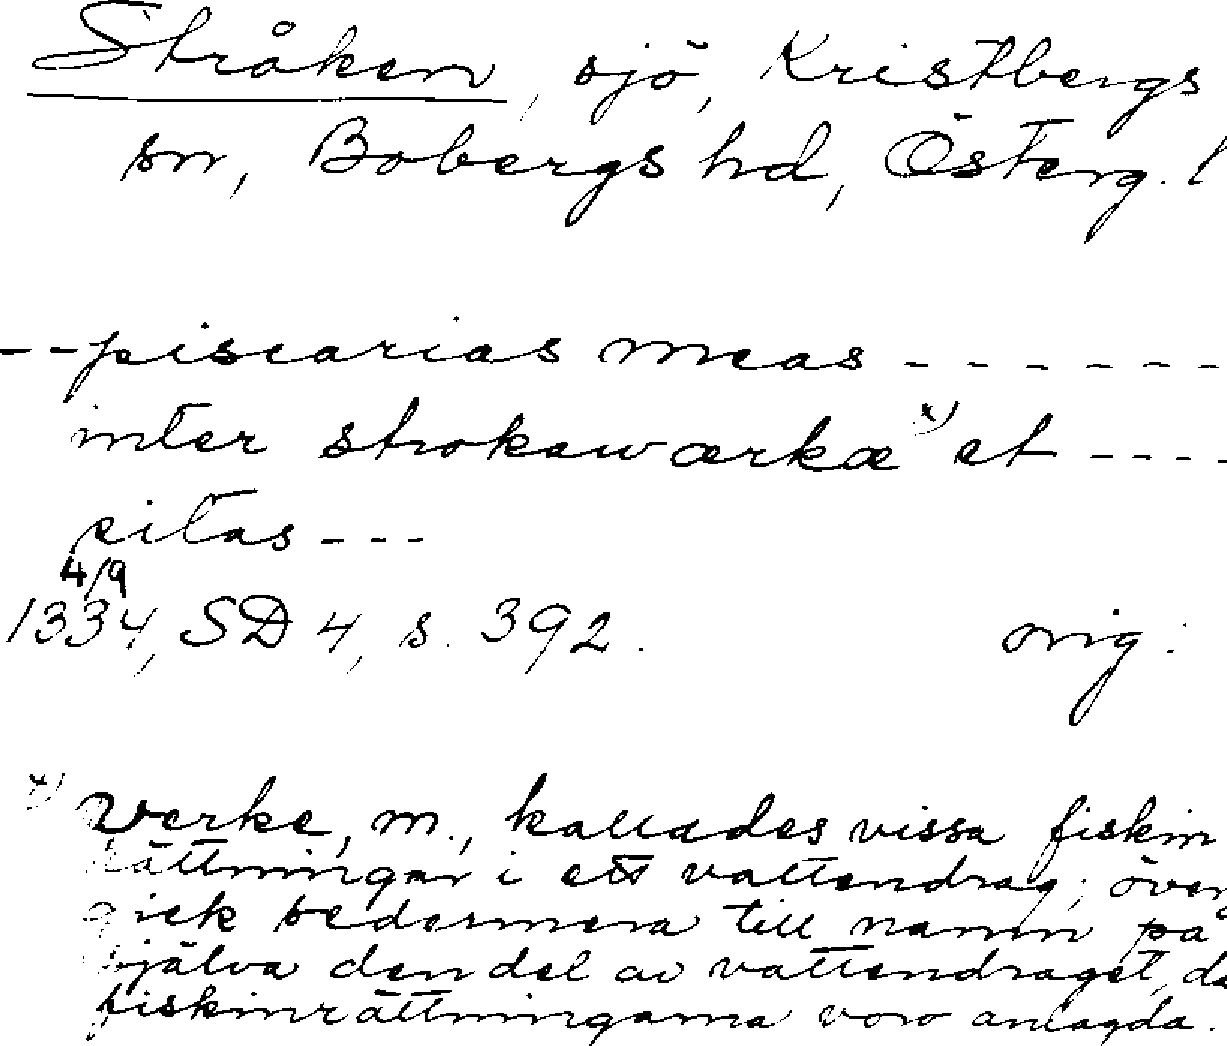 Stråken, sjö, Kristbergs
sn, Bobergs hd, Österg. l
--piscarias meas ------
inter strokawærkæ x) et ----
sitas ---
4/9
1334, SD 4, s. 392. orig.
x) Verke, m., kallades vissa fiskin
rättningar i ett vattendrag; överg
gick sedermera till namn på
själva den del av vattendraget, dä
fiskinrättningarna voro anlagda.